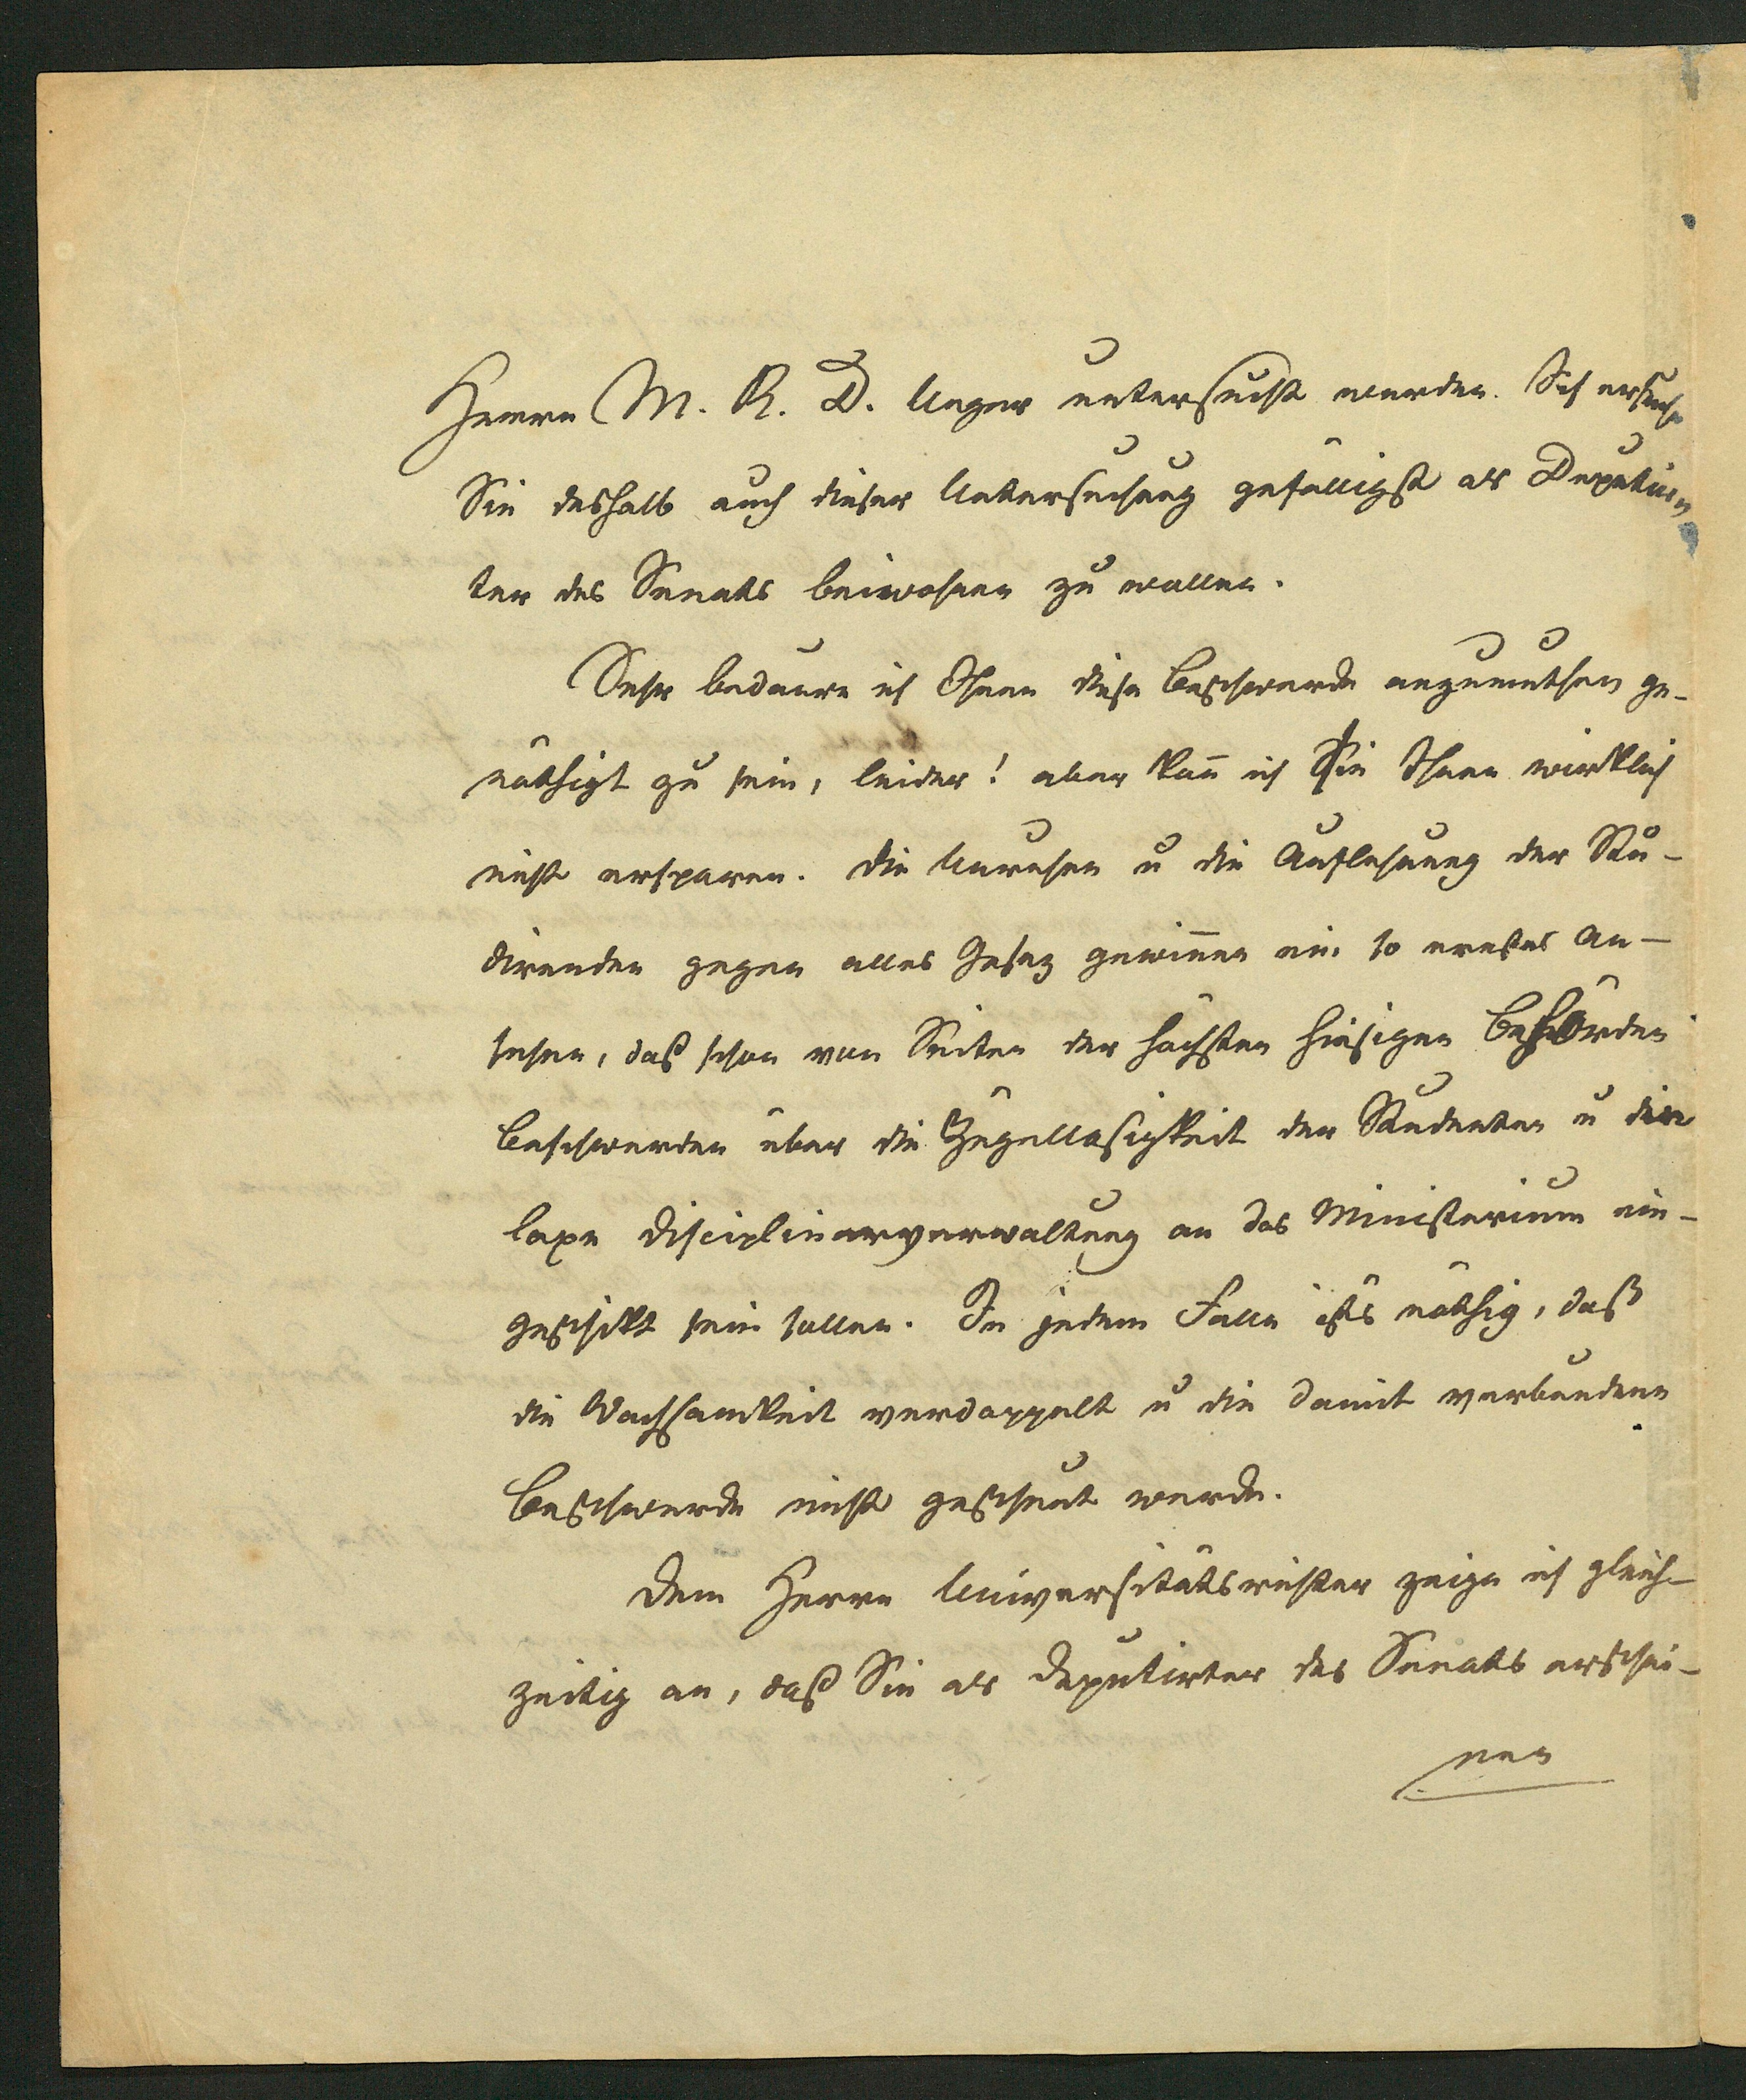 Herrn M. R. D. Unger untersucht werden. Ich ersuche
Sie deshalb auch dieser Untersuchung gefälligst als Deputir-
ter des Senats beiwohnen zu wollen.
Sehr bedaure ich Ihnen diese Beschwerde anzumuthen ge-
nöthigt zu sein, leider! aber kan̄ ich sie Ihnen wirklich
nicht ersparen. Die Unruhen u die Auflehnung der Stu-
direnden gegen alles Gesez gewin̄en ein so ernstes An-
sehen, daß schon von Seiten der höchsten hiesigen Behörden
Beschwerden über die Zügellosigkeit der Studenten u die
laxe Disciplinarverwaltung an das Ministerium ein-
geschikt sein sollen. In jedem Falle ists nöthig, daß
die Wachsamkeit verdoppelt u die damit verbundene
Beschwerde nicht gescheut werde.
Dem Herrn Universitätsrichter zeige ich gleich-
zeitig an, daß Sie als Deputirter des Senats erschei-
nen